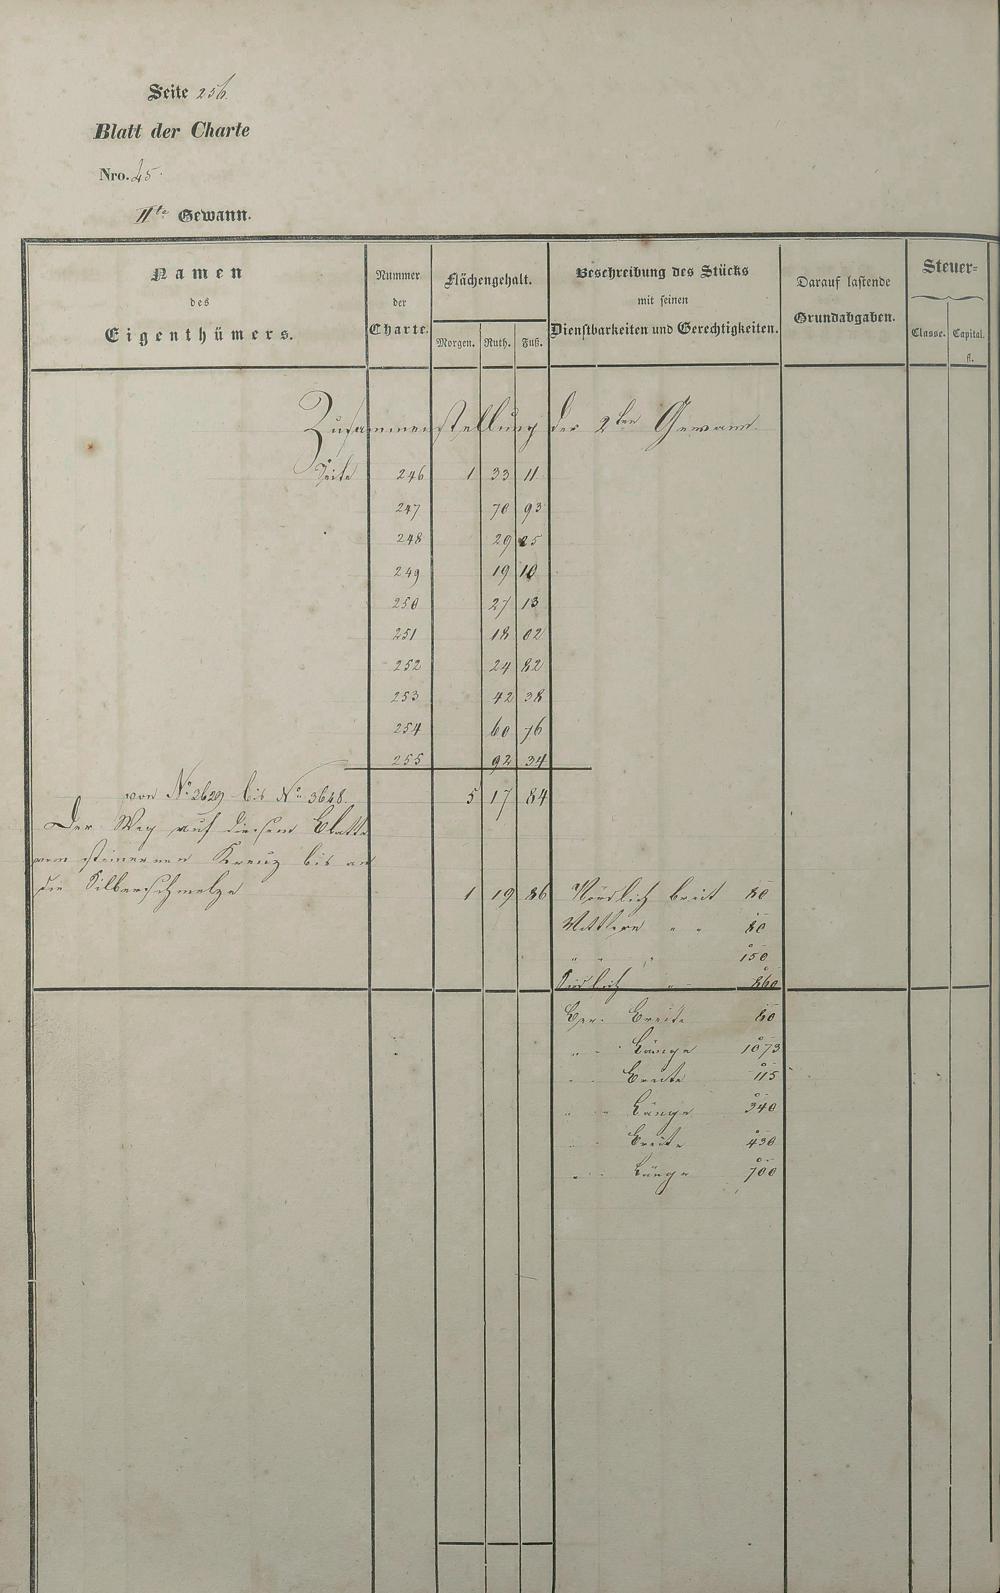 Seite 256.
Blatt der Charte
Nro. 45.
IIte Gewann.
Namen
des
Eigenthümers.
Nummer
der
Charte.
Flächengehalt.
Morgen. Ruth. Fuß.
Beschreibung des Stücks
mit seinen
Dienstbarkeiten und Gerechtigkeiten.
Darauf lastende
Grundabgaben.
Steuer=
Classe. Capital.
fl.
Zusammenstellung der 2ten Gewann.
Seite 246 1 33 11
247 70 93
248 29 25
249 19 10
250 27 13
251 18 02
252 24 82
253 42 38
254 60 76
255 92 34
von No. 3629 bis No. 3648. 5 17 84
Der Weg auf diesem Blatte
vom steinernen Kreuz bis an
die Silberschmelze 1 19 86 Nördlich breit 80
Mittlere " " 80
" " " 150
Südlich " 860
Ber. Breite 80
" " Länge 1073
" " Breite 115
" " Länge 340
" " Breite 430
" " Länge 700